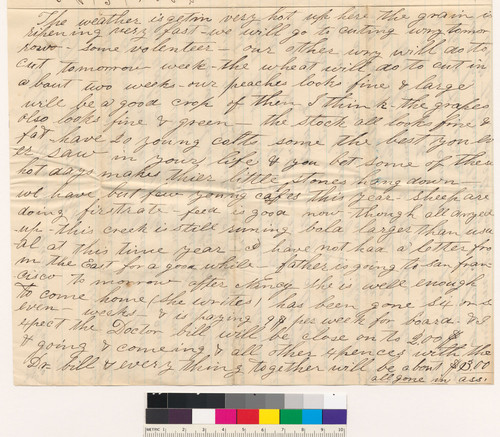 The weather is getin very hot up here the grain is
ripening very fast - we will go to cuting way tomor
row - Some volenteer - our other way will do to
cut tomorrow week - the wheat will do to cut in
about two weeks - our peaches looks fine & large
will be a good crop of them I think - the grapes
also looks fine & green - the stock all looks fine &
fat - have 20 young colts some the best you
ev saw in your life & you bet some of these
hot days makes thier little stones hang down
we have but few young calfes this year - sheep are
doing firstrate - feed is good now though all dryed
up - this creek is still runing bold larger than usu
al at this time year - I have not had a letter fro
m the East for a good while - father is going to San Fran
cisco to morrow after Nincy she is well enough
to come home (she writes) has been gone six or s
even - weeks & is paying 9$ per week for board. & I
expect the Doctor bill will be close on to 200$
& going & comeing & all other expences with the
Dr. bill & every thing together will be about $300
all gone in ass.
METRIC 1 2 3 4 5 6 7 8 9 10